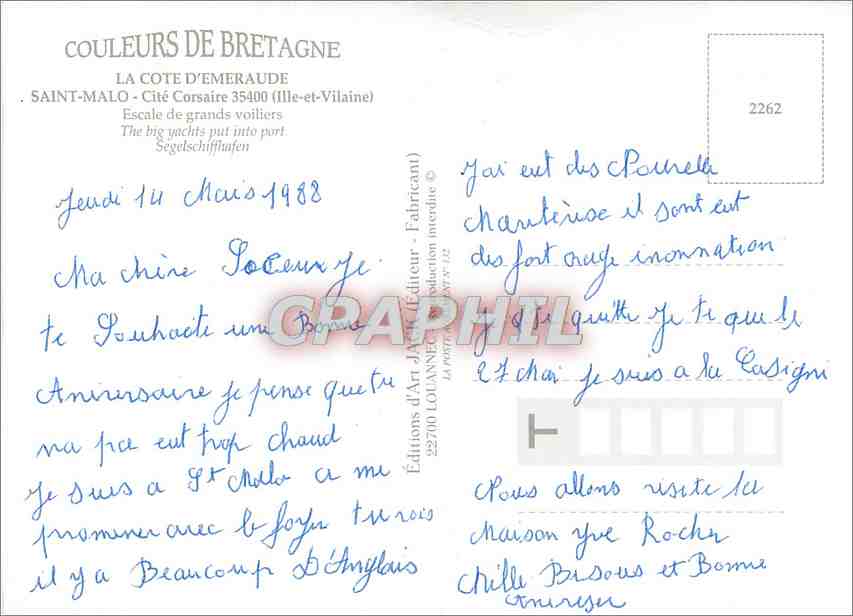 COULEURS DE BRETAGNE
LA COTE D'EMERAUDE
. SAINT-MALO - Cité Corsaire 35400 (Ille-et-Vilaine)
Escale de grands voiliers
The big yachts put into port
Segelschiffhafen
2262
Jeudi 14 Mais 1988
Ma chère Soceur je
te Souhaite une Bonne
Anirersaire je pense que tu
na pa eut trop chaud
Je suis a St Malo a me
promener avec le foyer tu vois
il y a Beaucoup D'Anglais
Éditions d'Art JACK (Éditeur - Fabricant)
22700 LOUANNEC production interdite ©
LA POSTE
CPAPHIL
J'ai eut des
il sont eut
des fort orage inonnation
je te quitte je te que le
27 Mai je suis a la
Nous allons visite la
Maison Yve Rocher
Mille Bisous et Bonne